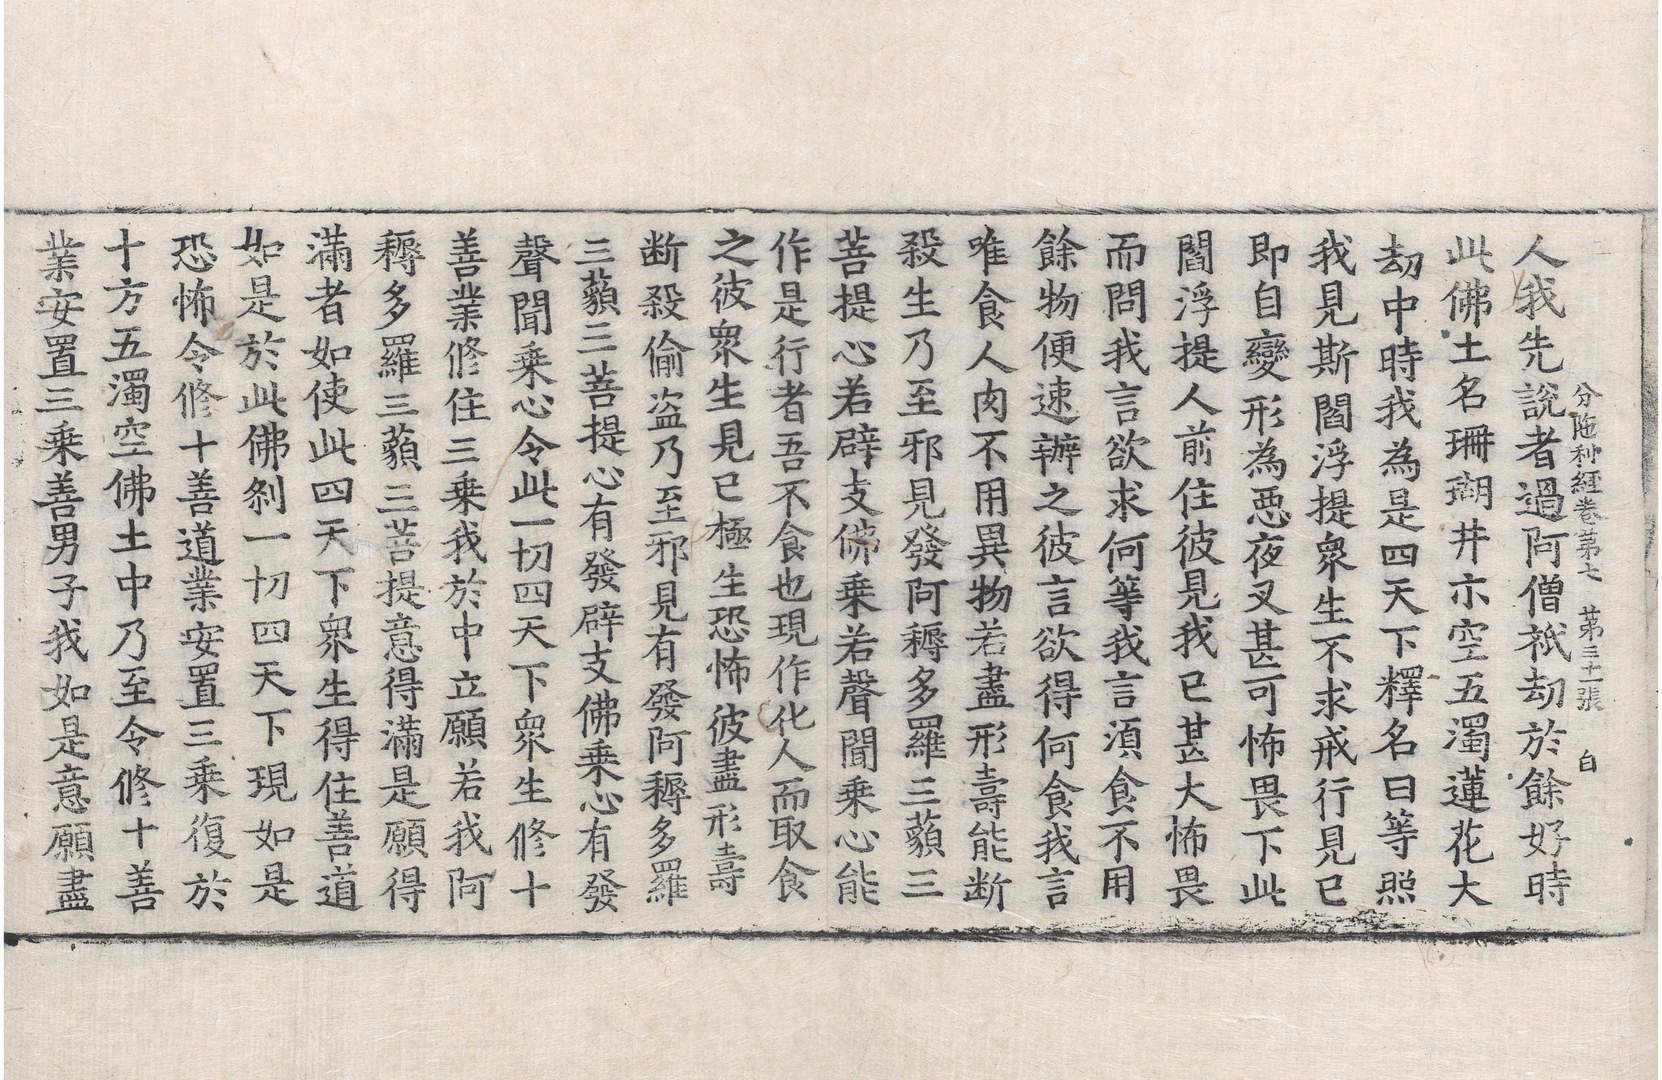 分陁利經卷第七　第三十一張　白
人我先說者過阿僧祇劫於餘好時
此佛土名珊瑚井亦空五濁蓮花大
劫中時我為是四天下釋名曰等照
我見斯閻浮提衆生不求戒行見已
即自變形為悪夜叉甚可怖畏下此
閻浮提人前住彼見我已甚大怖畏
而問我言欲求何等我言湏食不用
餘物便速辦之彼言欲得何食我言
唯食人肉不用異物若盡形壽能断
殺生乃至邪見發阿耨多羅三藐三
菩提心若辟支佛乗若聲聞乗心能
作是行者吾不食也現作化人而取食
之彼衆生見已極生恐怖彼盡形壽
断殺偷盗乃至邪見有發阿耨多羅
三藐三菩提心有發辟支佛乗心有發
聲聞乗心令此一切四天下衆生修十
善業修住三乗我於中立願若我阿
耨多羅三藐三菩提意得滿是願得
滿者如使此四天下衆生得住善道
如是於此佛刹一切四天下現如是
恐怖令修十善道業安置三乗復於
十方五濁空佛土中乃至令修十善
業安置三乗善男子我如是意願盡